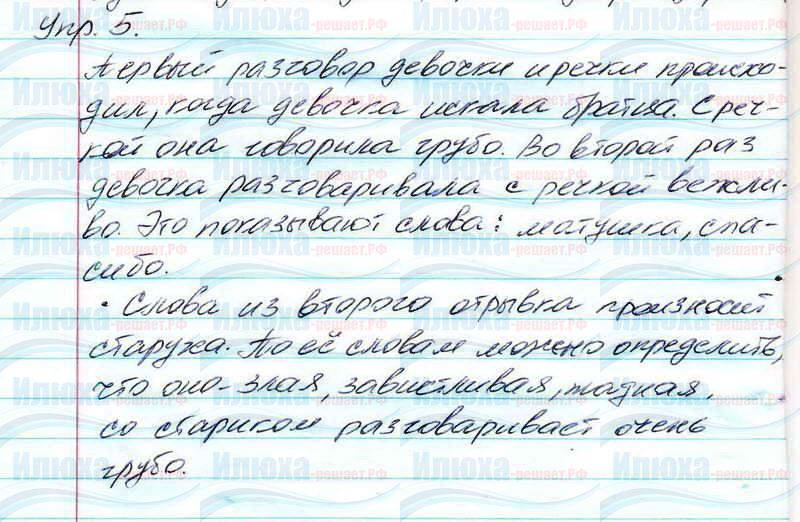 Упр. 5.
Первый разговор девочки и речки происхо-
дил, когда девочка искала братца. С реч-
кой она говорила грубо. Во второй раз
девочка разговаривала с речкой вежли-
во. Это показывают слова: матушка, спа-
сибо.
· Слова из второго отрывка произносит
старуха. По её словам можно определить,
что она - злая, завистливая, жадная,
со стариком разговаривает очень
грубо.
Илюха-решает.РФ